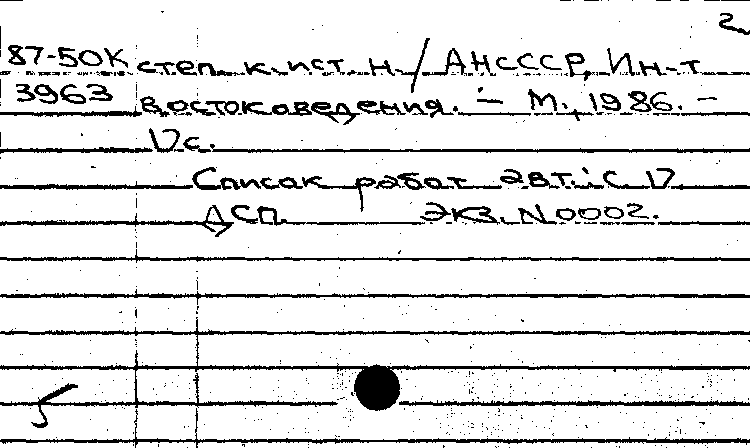 2
87-50К степ. к. ист. н. / АНСССР, Ин-т
3963 востоковедения. - М., 1986. -
17с.
Список работ авт.: С. 17.
ДСП. Экз. N 0002.
5